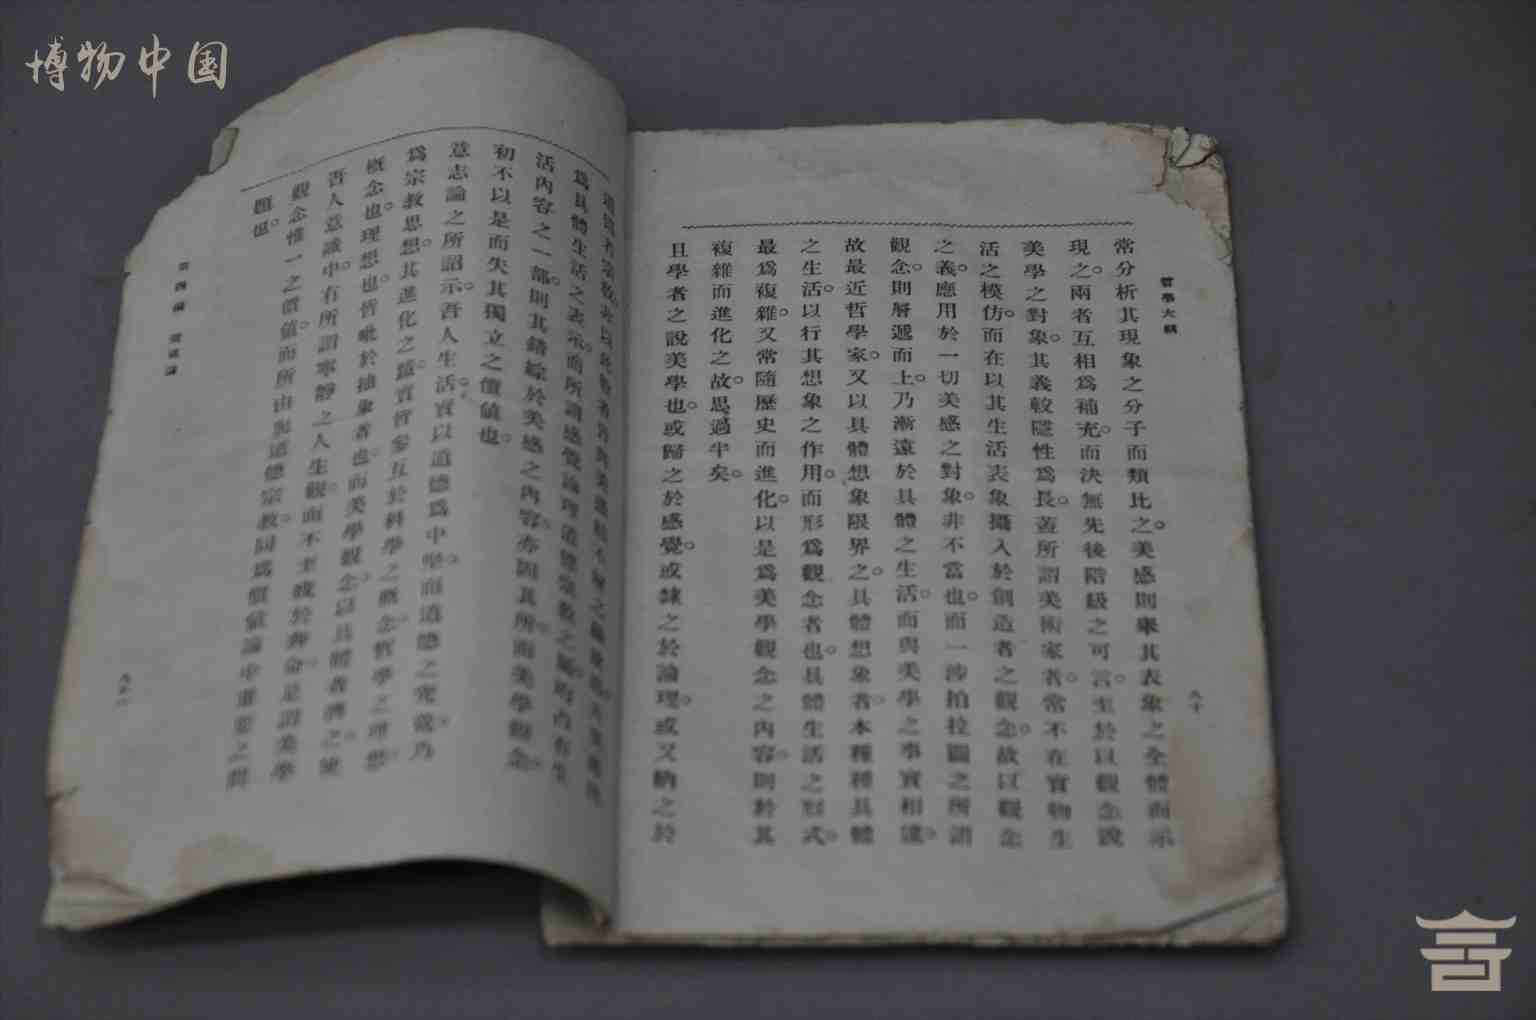 博物中国
哲學大綱
九十
常分析其現象之分子而類比之。美感則舉其表象之全體而示
現之。兩者互相爲補充。而決無先後階級之可言。至於以觀念說
美學之對象。其義較隱。性爲長。蓋所謂美術家者。常不在實物生
活之模仿。而在以其生活表象攝入於創造者之觀念。故以觀念
之義。應用於一切美感之對象。非不當也。而一涉柏拉圖之所謂
觀念。則層遞而上。乃漸遠於具體之生活。而與美學之事實相違。
故最近哲學家。又以具體想象限界之。具體想象者。本種種具體
之生活。以行其想象之作用。而形爲觀念者也。具體生活之形式。
最爲複雜。又常隨歷史而進化。以是爲美學觀念之內容。則於其
複雜而進化之故。思過半矣。
且學者之說美學也。或歸之於感覺。或隸之於論理。或又納之於
爲具體生活之表示。而所謂感覺論理道德宗教之
活內容之一部。則其錯綜於美感之內容。亦固其所。而美學觀念
初不以是而失其獨立之價値也。
意志論之所詔示。吾人生活。實以道德爲中堅。而道德之究竟。乃
爲宗教思想。其進化之蹟。實皆參互於科學之概念。哲學之理想。
概念也。理想也。皆毗於抽象者也。而美學觀念。以具體者濟之。使
吾人意識中。有所謂寧靜之人生觀。而不至疲於奔命。是謂美學
觀念惟一之價値。而所由與道德宗教。同爲價値論中重要之問
題也。
第四編 價値論
九十一